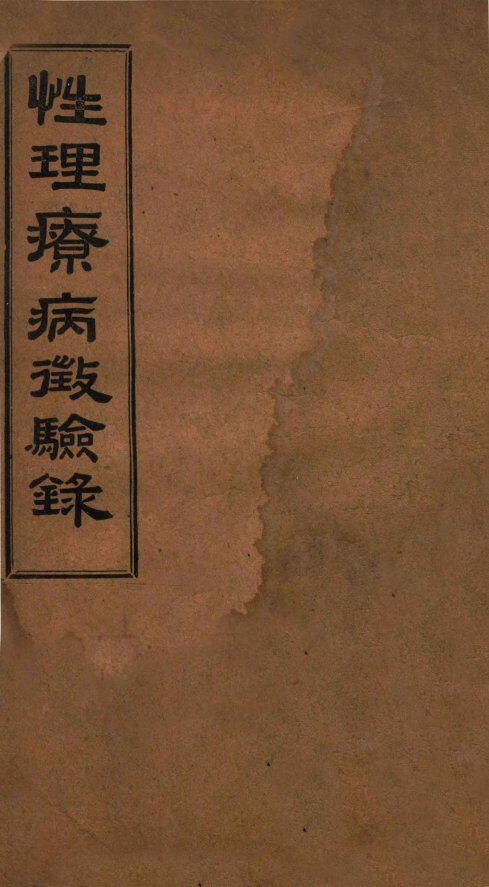 性理療病徵驗錄